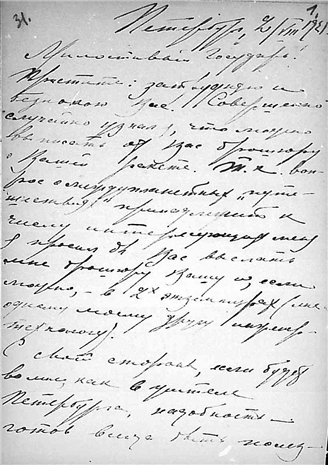 31.
1.
Петербург, 2/VIII 1921
Милостивый Государь!
Простите: затрудняю и
беспокою Вас. Совершенно
случайно узнал, что можно
выписать от Вас брошюру
о Вашей ракете. Т.к. воп-
рос о междупланетных "путе-
шествиях" принадлежит к
числу интересующих меня
я просил бы Вас выслать
мне брошюру Вашу и, если
можно, – в 2х экземплярах (и
одному моему другу
технологу).
С своей стороны, если будет
во мне, как в жителе
Петербурга, надобность –
готов всегда быть полез-